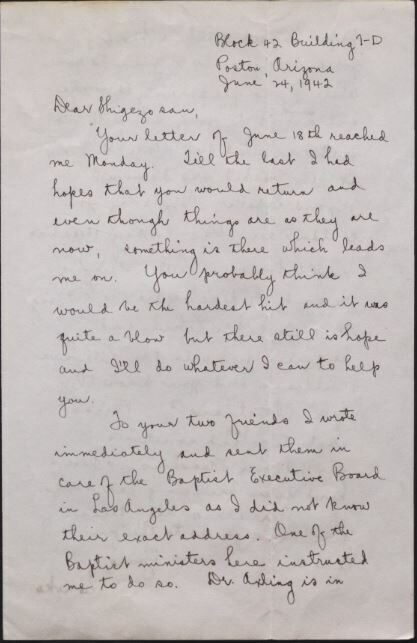 Block 42 Building 7-D
Poston, Arizona
June 24, 1942
Dear Shigezo san,
Your letter of June 18th reached
me Monday. Till the last I had
hopes that you would return and
even though things are as they are
now, something is there which leads
me on. You probably think I
would be the hardest hit and it was
quite a blow but there still is hope
and I'll do whatever I can to help
you.
To your two friends I wrote
immediately and sent them in
care of the Baptist Executive Board
in Los Angeles as I did not know
their exact address. One of the
Baptist ministers here instructed
me to do so. Dr. Axling is in